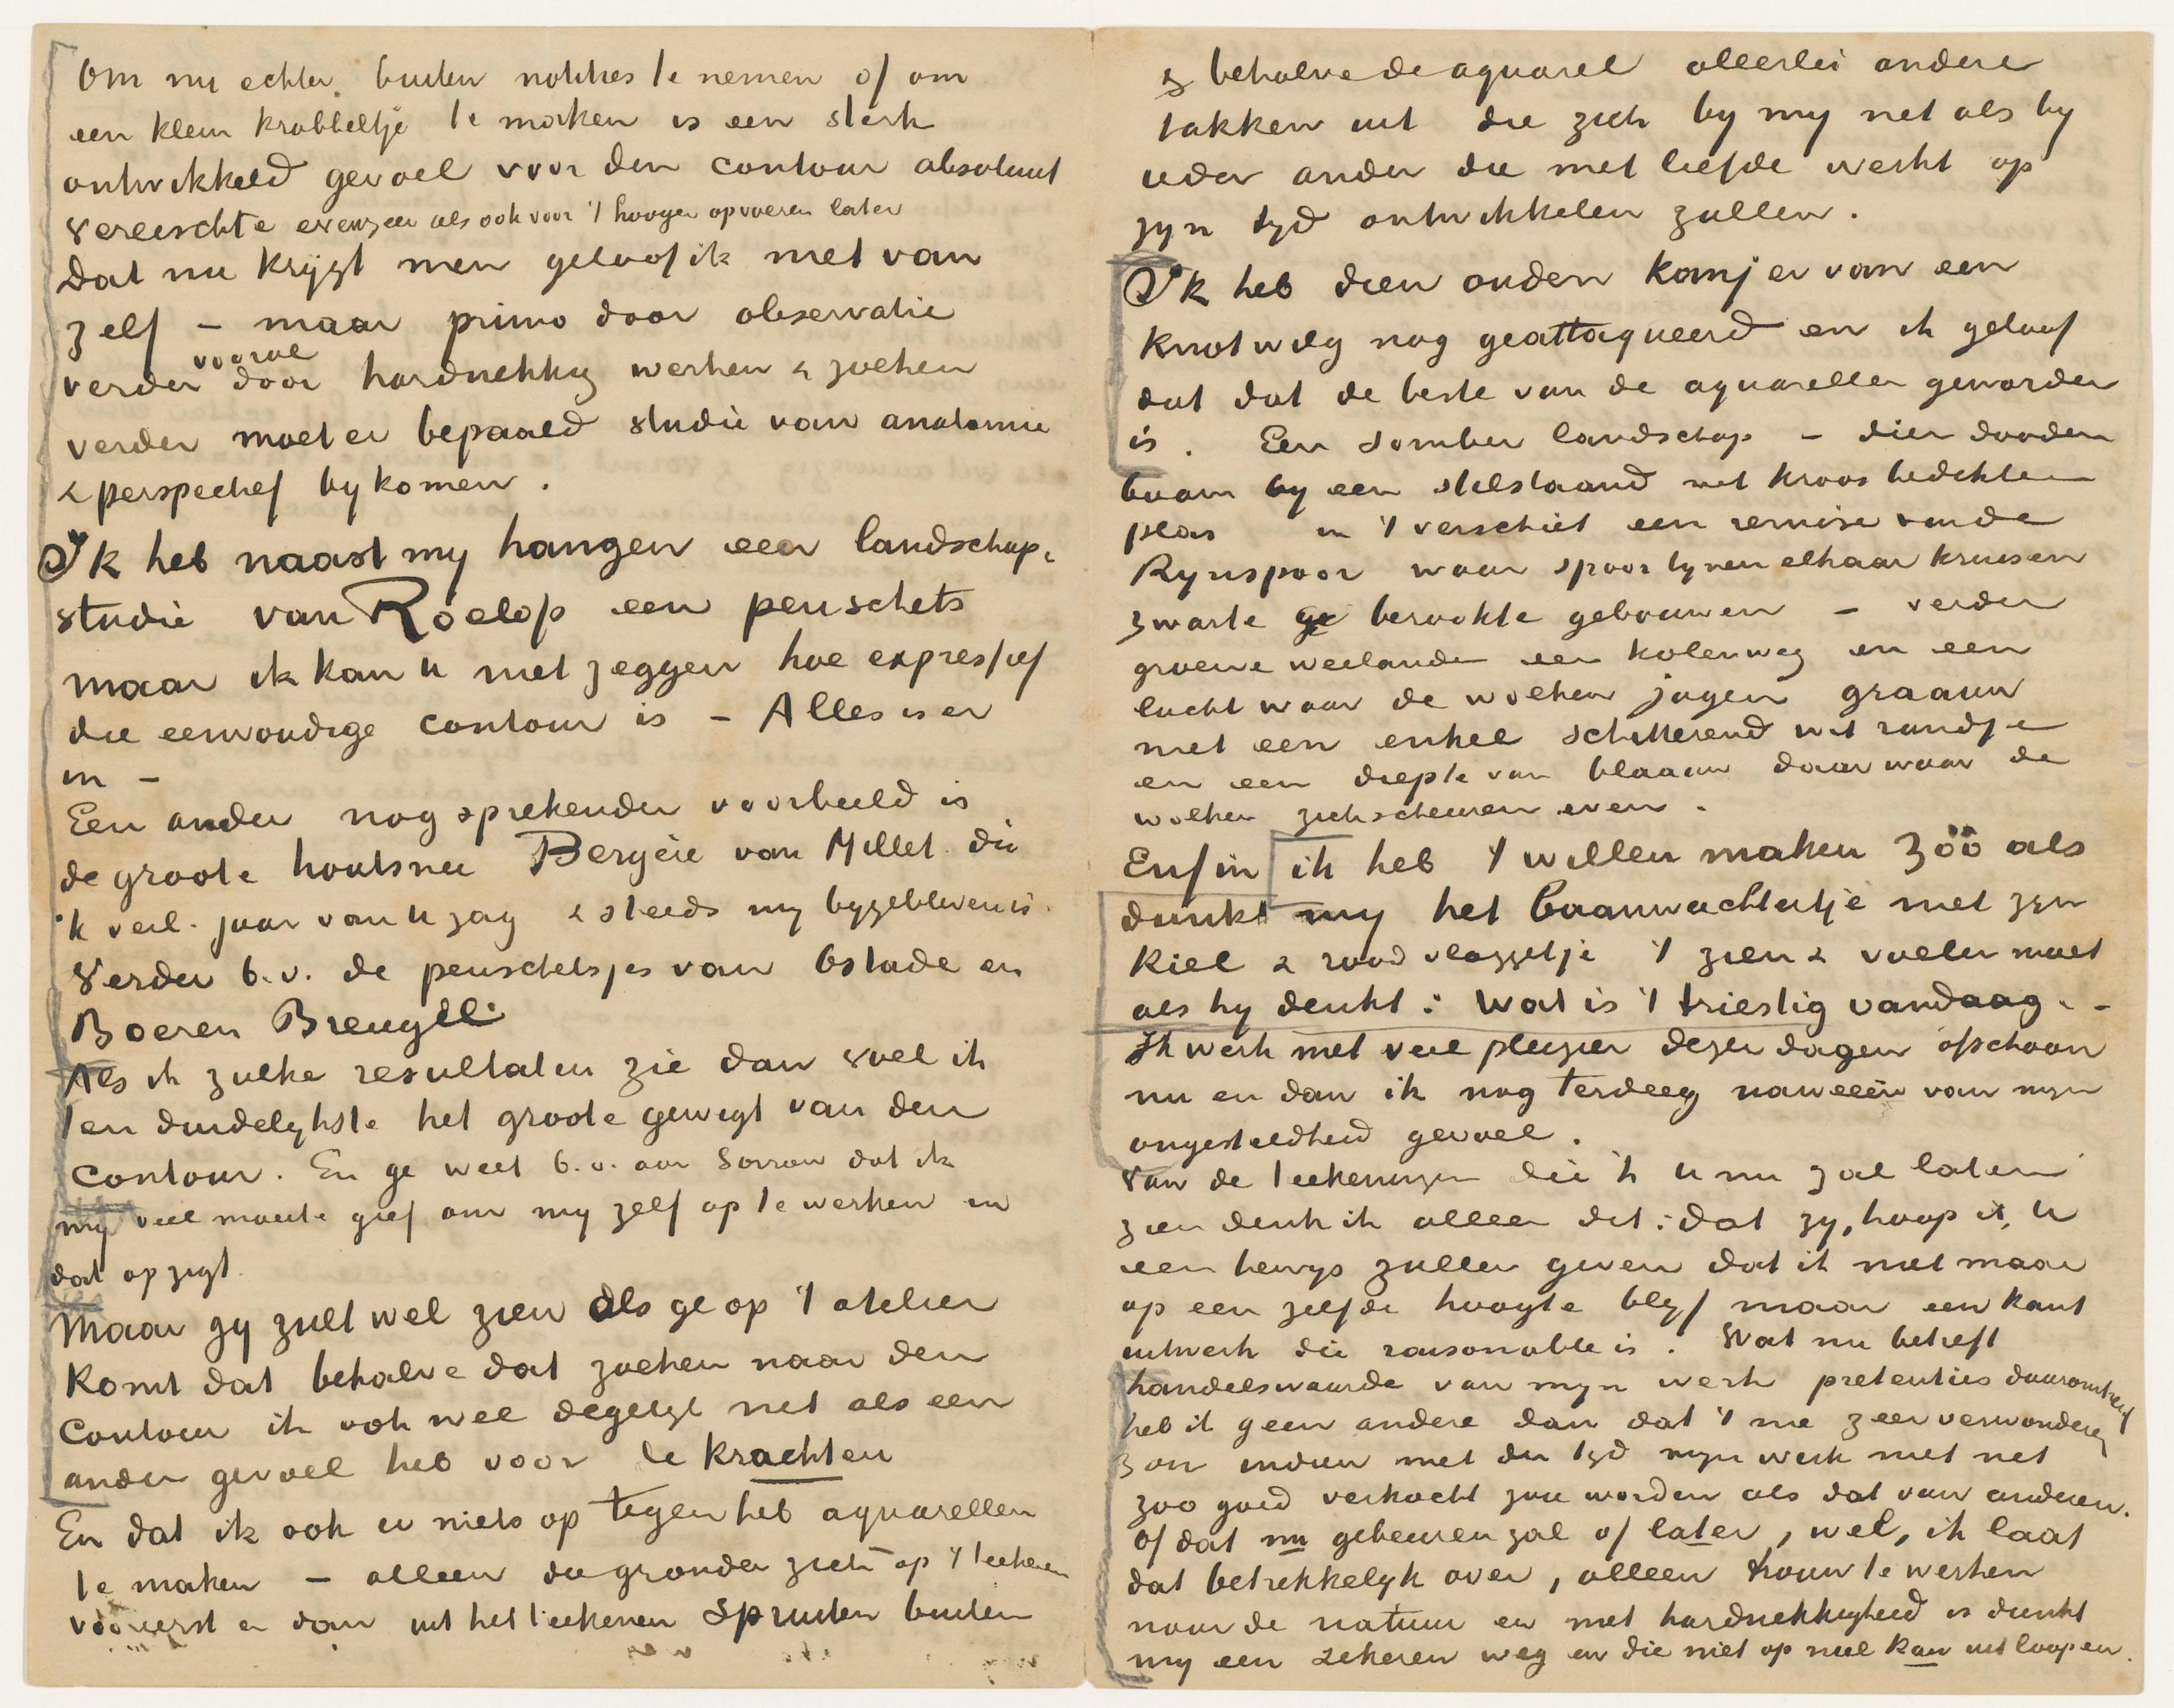 Om nu echter buiten notities te nemen of om
een klein krabbeltje te maken is een sterk
ontwikkeld gevoel voor den contour absoluut
vereischte evenzeer als ook voor 't hooger opvoeren later
Dat nu krijgt men geloof ik niet van
zelf — maar primo door observatie
verder vooral door hardnekkig werken & zoeken
verder moet er bepaald studie van anatomie
& perspectief bykomen.
Ik heb naast my hangen een landschap-
studie van Roelofs een penschets
maar ik kan u niet zeggen hoe expressief
die eenvoudige contour is — Alles is er
in —
Een ander nog sprekender voorbeeld is
de groote houtsnee Bergère van Millet die
'k verl. jaar van u zag & steeds my bygebleven is.
Verder b.v. de penschetsjes van Ostade en
Boeren Breugel.
Als ik zulke resultaten zie dan voel ik
ten duidelykste het groote gewigt van den
contour. En ge weet b.v. aan Sorrow dat ik
my veel moeite geef om my zelf op te werken in
dat opzigt.
Maar gy zult wel zien als ge op 't atelier
komt dat behalve dat zoeken naar den
contour ik ook wel degelyk net als een
ander gevoel heb voor de krachten
En dat ik ook er niets op tegen heb aquarellen
te maken — alleen die gronden zich op 't teekenen
vooreerst en dan uit het teekenen Spruiten buiten
& behalve de aquarel allerlei andere
takken uit die zich by my net als by
ieder ander die met liefde werkt op
zyn tyd ontwikkelen zullen.
Ik heb dien ouden kanjer van een
knotwilg nog geattaqueerd en ik geloof
dat dat de beste van de aquarellen geworden
is. Een somber landschap — dien dooden
boom by een stilstaand met kroos bedekten
plas in 't verschiet een remise van de
Rynspoor waar spoorlynen elkaar kruisen
zwarte ge berookte gebouwen — verder
groene weilanden een kolenweg en een
lucht waar de wolken jagen graauw
met een enkel schitterend wit randje
en een diepte van blaauw daar waar de
wolken zich scheuren even.
Enfin ik heb 't willen maken zóó als
dunkt my het baanwachtertje met zyn
kiel & rood vlaggetje 't zien & voelen moet
als hy denkt: wat is 't triestig vandaag. –
Ik werk met veel pleizier dezer dagen ofschoon
nu en dan ik nog terdeeg naweeën van myn
ongesteldheid gevoel.
Van de teekeningen die 'k u nu zal laten
zien denk ik alleen dit: dat zy, hoop ik, u
een bewys zullen geven dat ik niet maar
op een zelfde hoogte blyf maar een kant
uitwerk die raisonnable is. Wat nu betreft
handelswaarde van myn werk pretenties daaromtrent
heb ik geen andere dan dat 't me zeer verwonderen
zou indien met der tyd myn werk niet net
zoo goed verkocht zou worden als dat van anderen.
Of dat nu gebeuren zal of later, wel, ik laat
dat betrekkelyk over, alleen trouw te werken
naar de natuur en met hardnekkigheid is dunkt
my een zekeren weg en die niet op niet kan uitloopen.